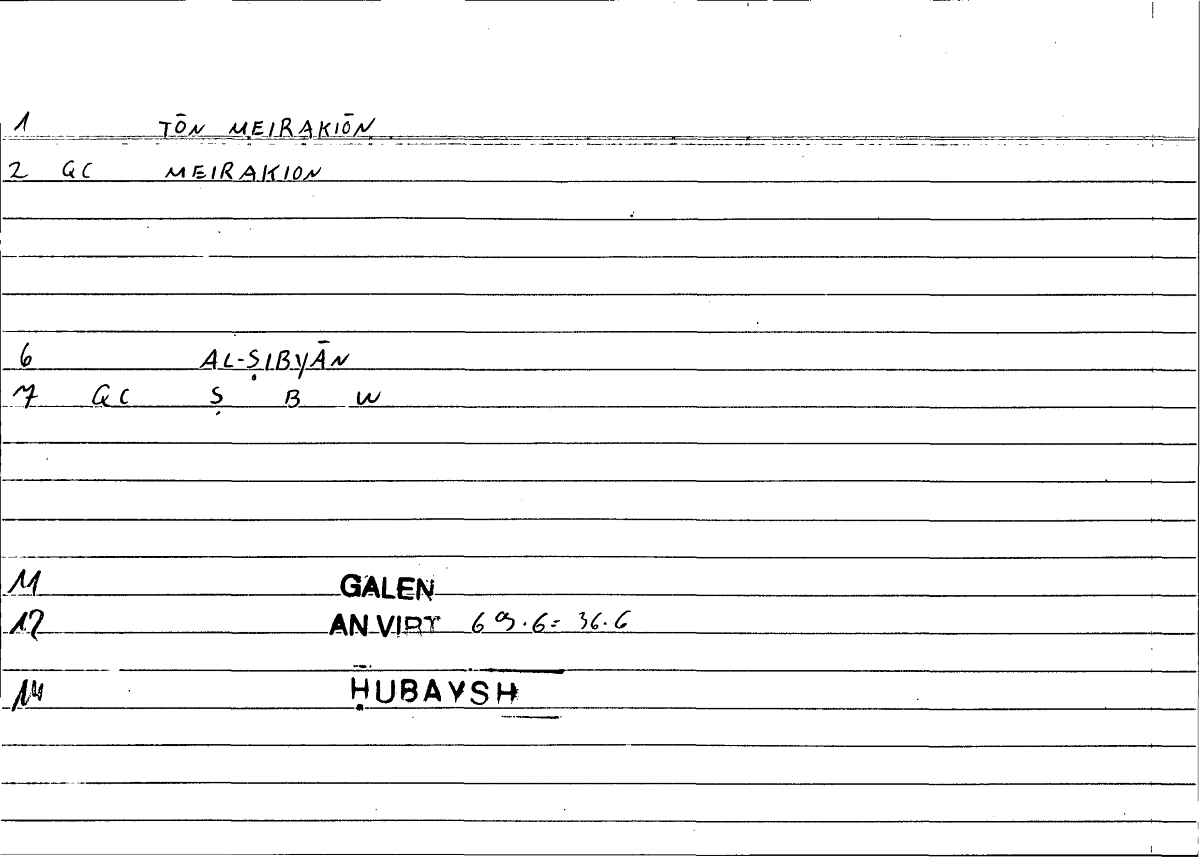 1 TŌN MEIRAKIŌN
2 GC MEIRAKION
6 AL-ṢIBYĀN
7 GC Ṣ B W
11 GALEN
12 AN VIRT 69.6= 36.6
14 ḤUBAYSH